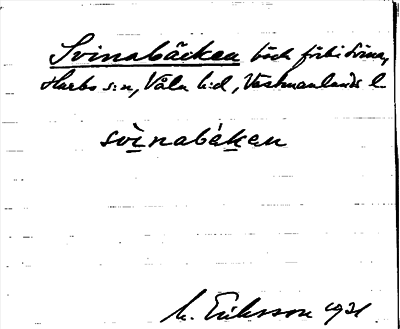 Svinabäcken bäck förbi Svina,
Harbo s:n, Våla h:d, Västmanlands l.
svinabäken
M. Eriksson 1931